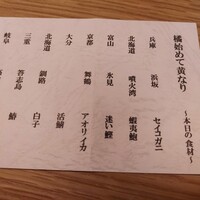 橘始めて黄なり
～本日の食材～
兵庫 浜坂 セイコガニ
北海道 噴火湾 蝦夷鮑
富山 氷見 迷い鰹
京都 舞鶴 アオリイカ
大分 活鱧
北海道 釧路 白子
三重 答志島 鰆
岐阜